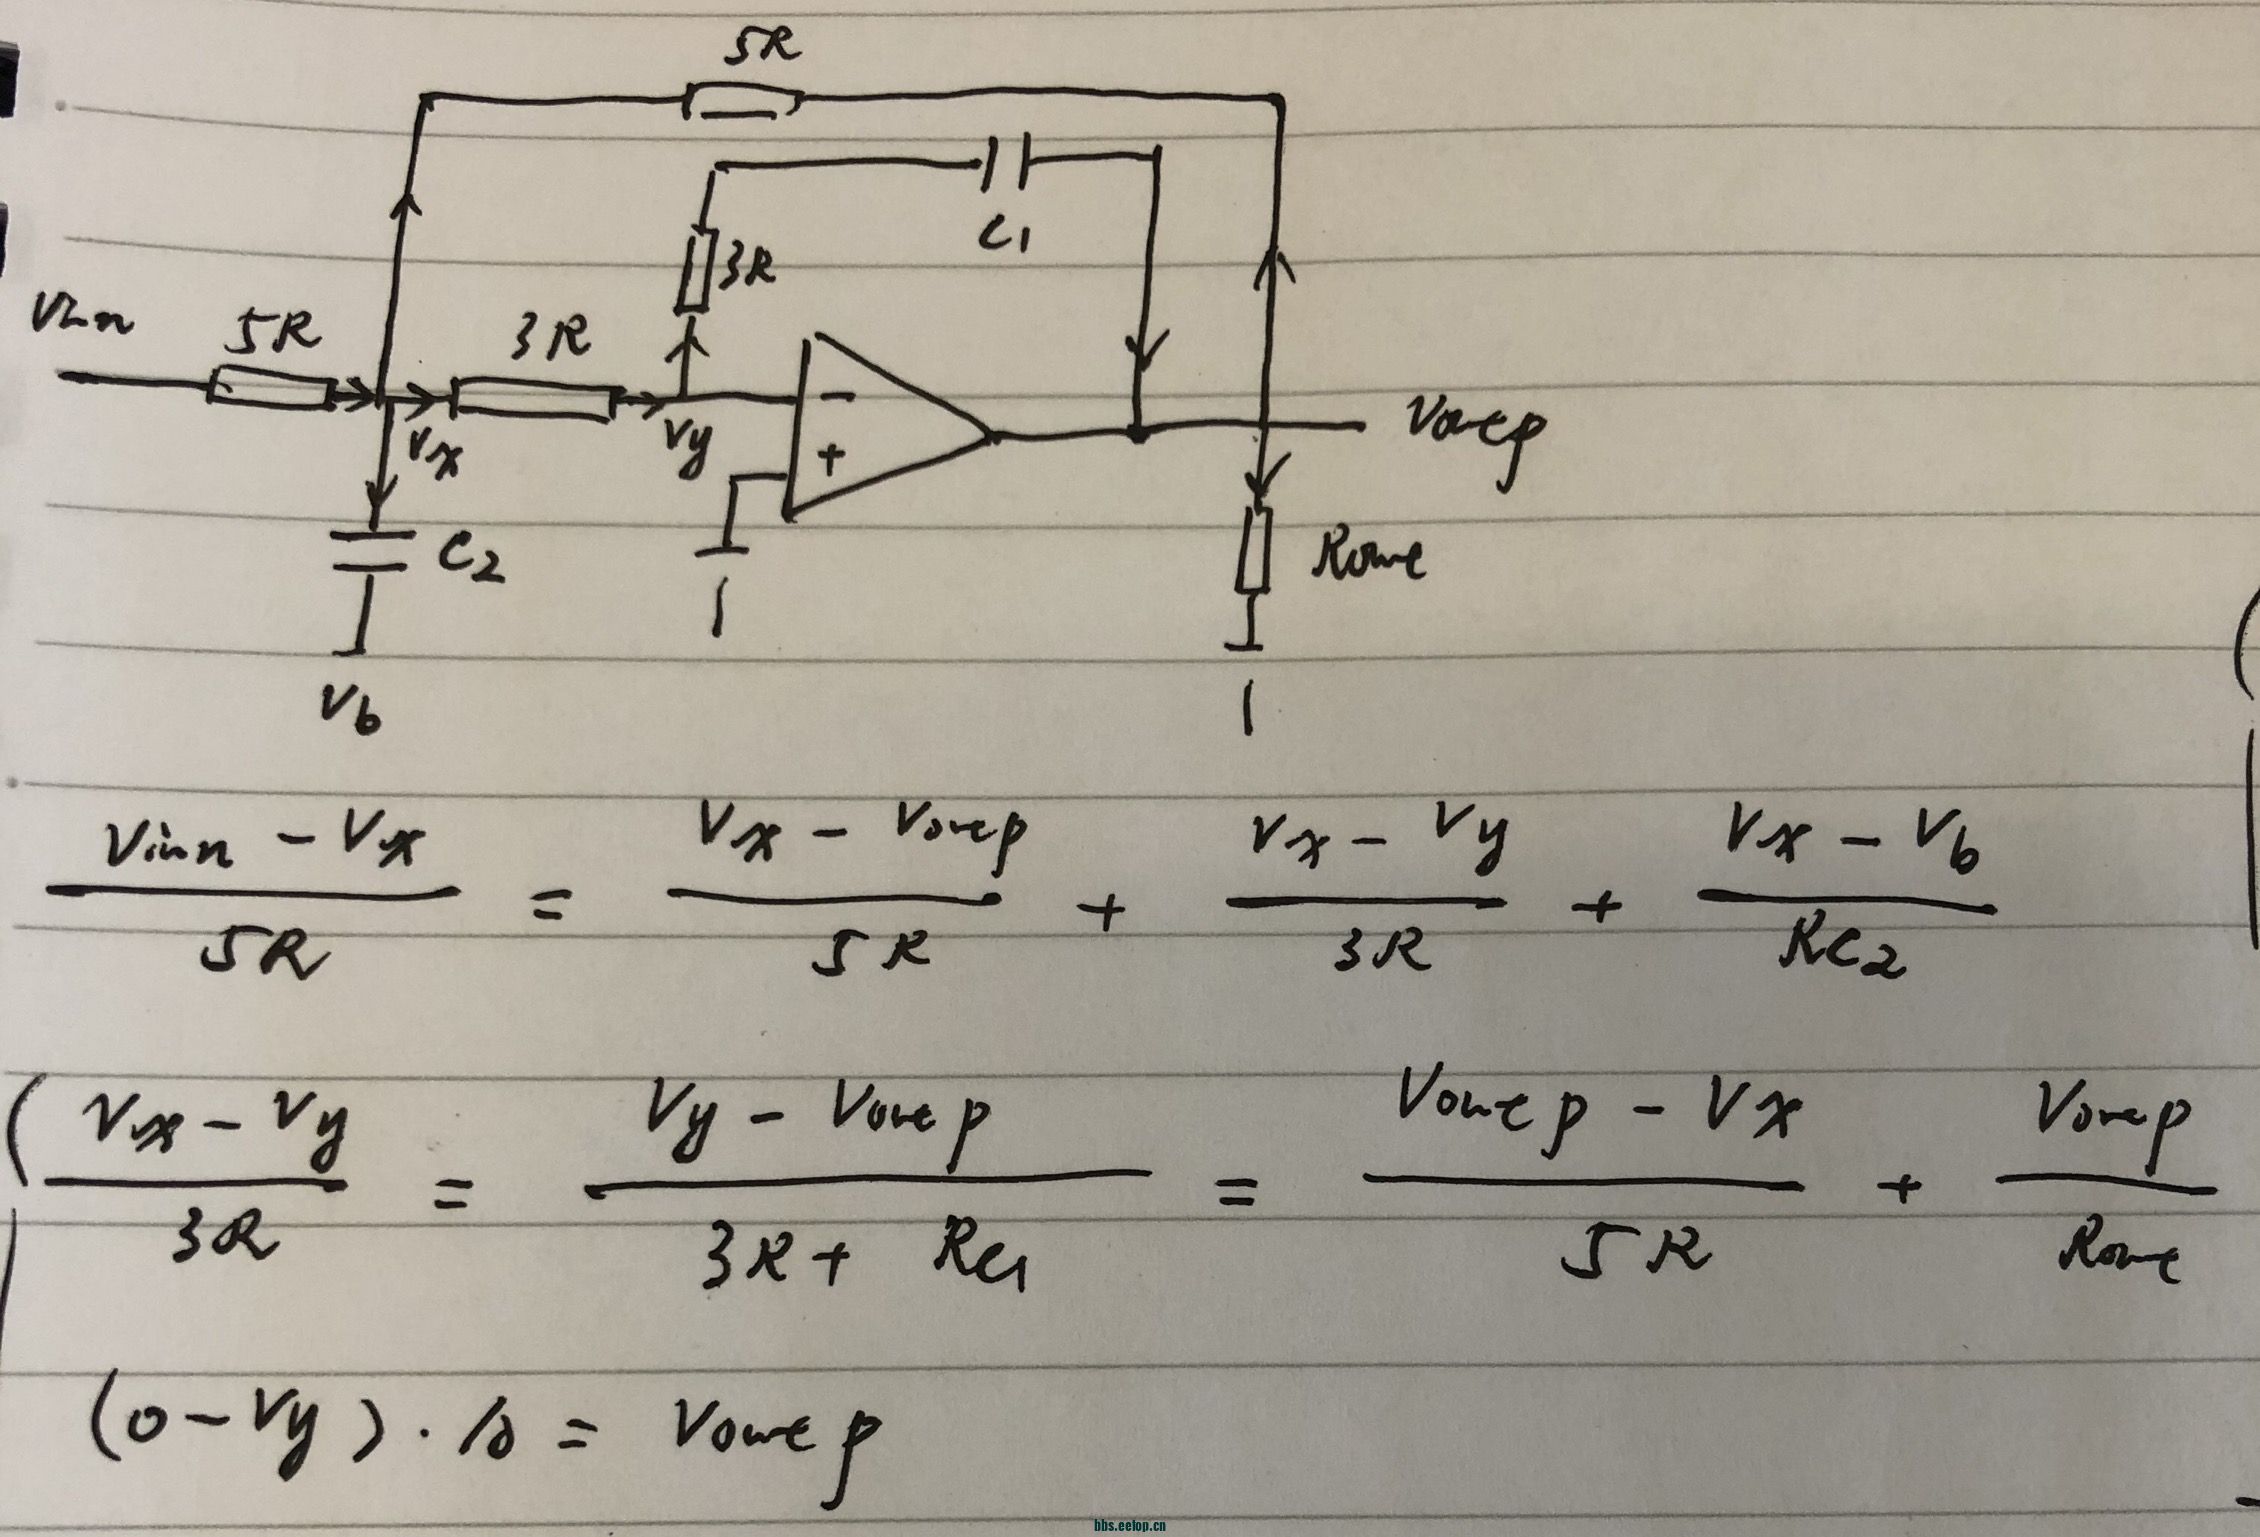 5R
C1
3R
Vinn
5R
3R
Vx
Vy
-
+
Voutp
C2
Rout
Vb
Vinn - Vx / 5R = Vx - Voutp / 5R + Vx - Vy / 3R + Vx - Vb / RC2
( Vx - Vy / 3R = Vy - Voutp / 3R + RC1 = Voutp - Vx / 5R + Voutp / Rout
(0 - Vy) · A0 = Voutp
bbs.eetop.cn